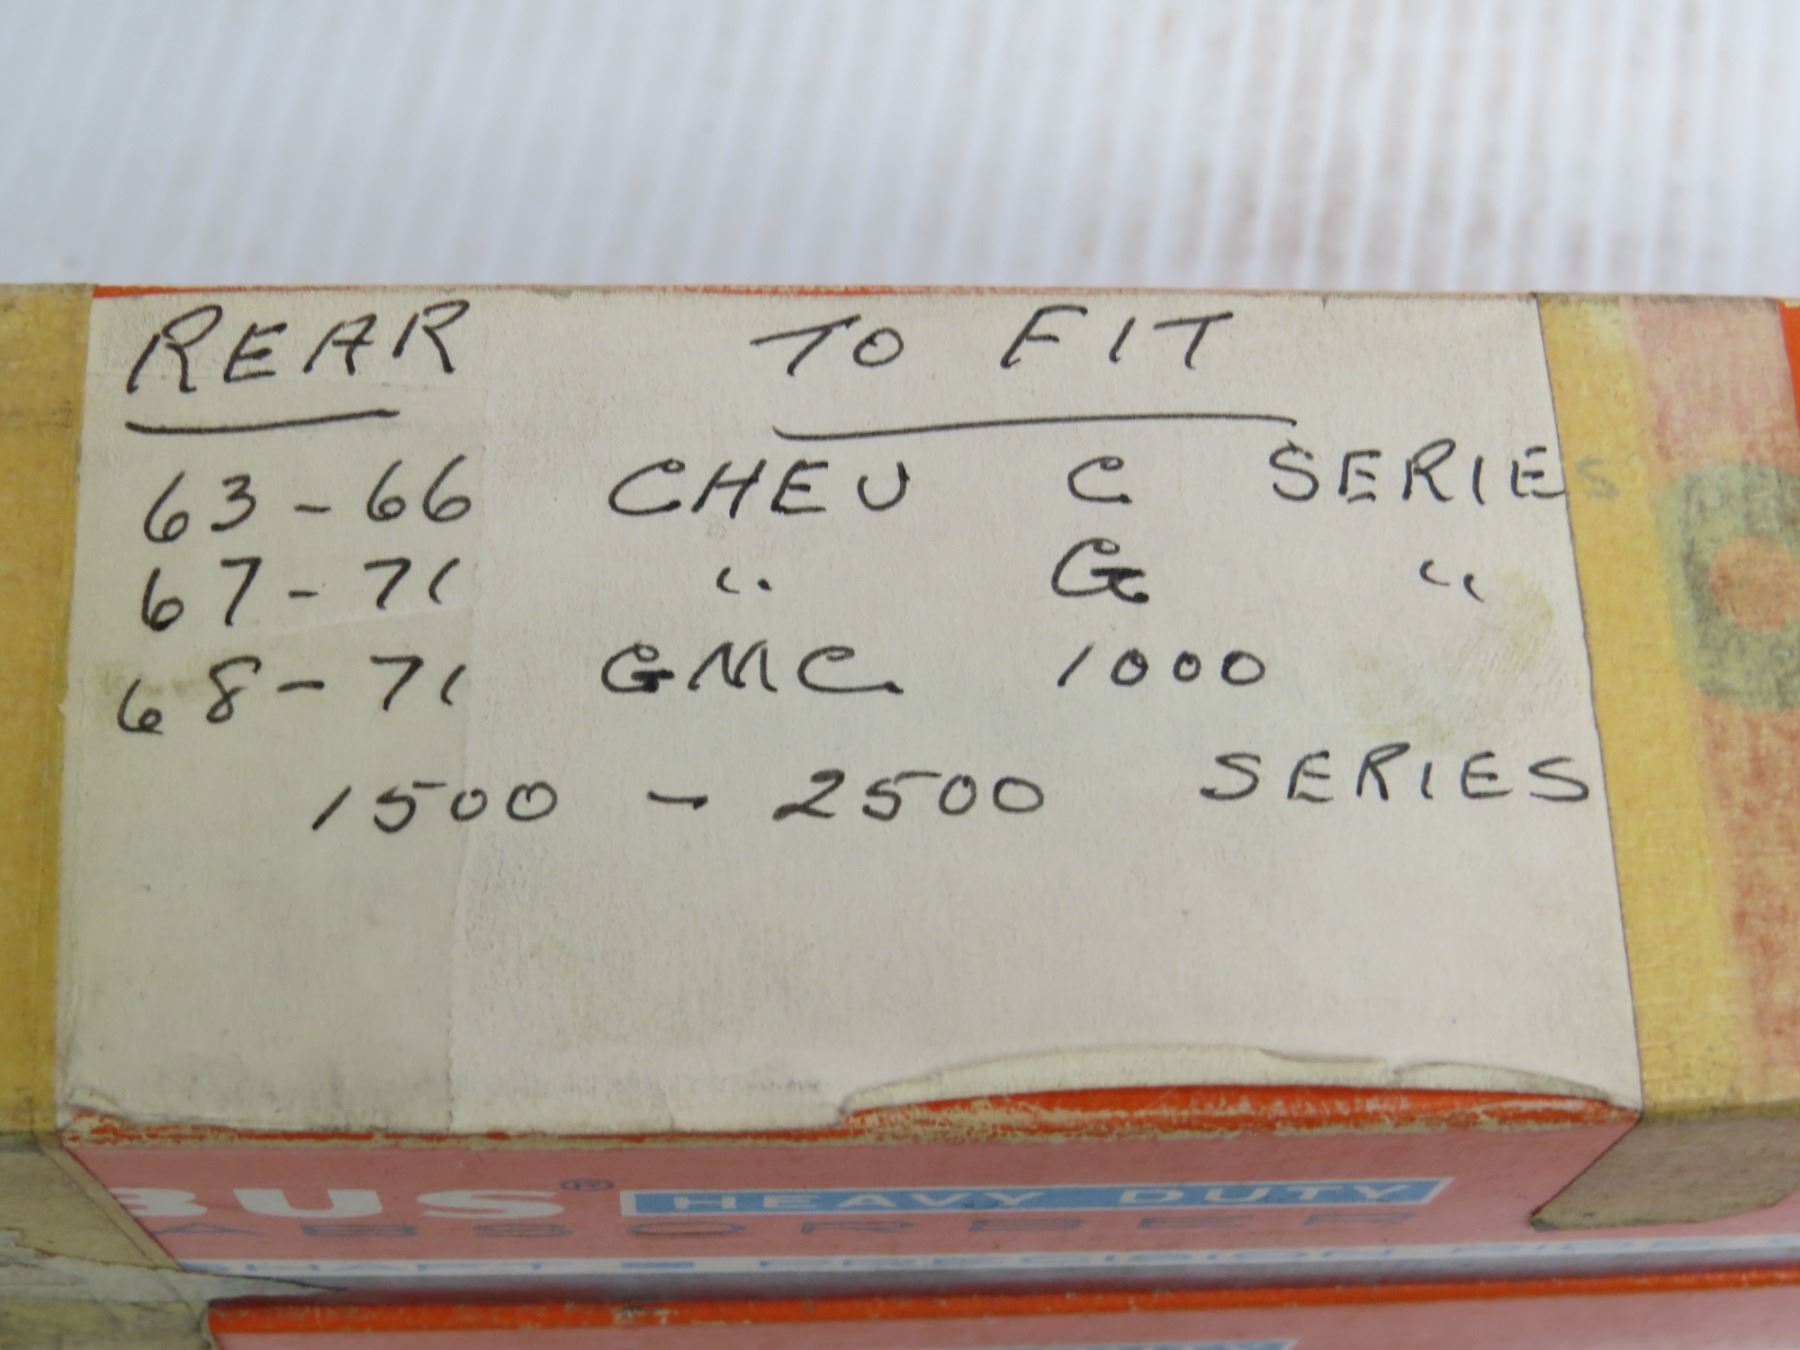 REAR TO FIT
63-66 CHEV C SERIES
67-71 " G "
68-71 GMC 1000
1500 - 2500 SERIES
BUS® HEAVY DUTY
ABSORBER